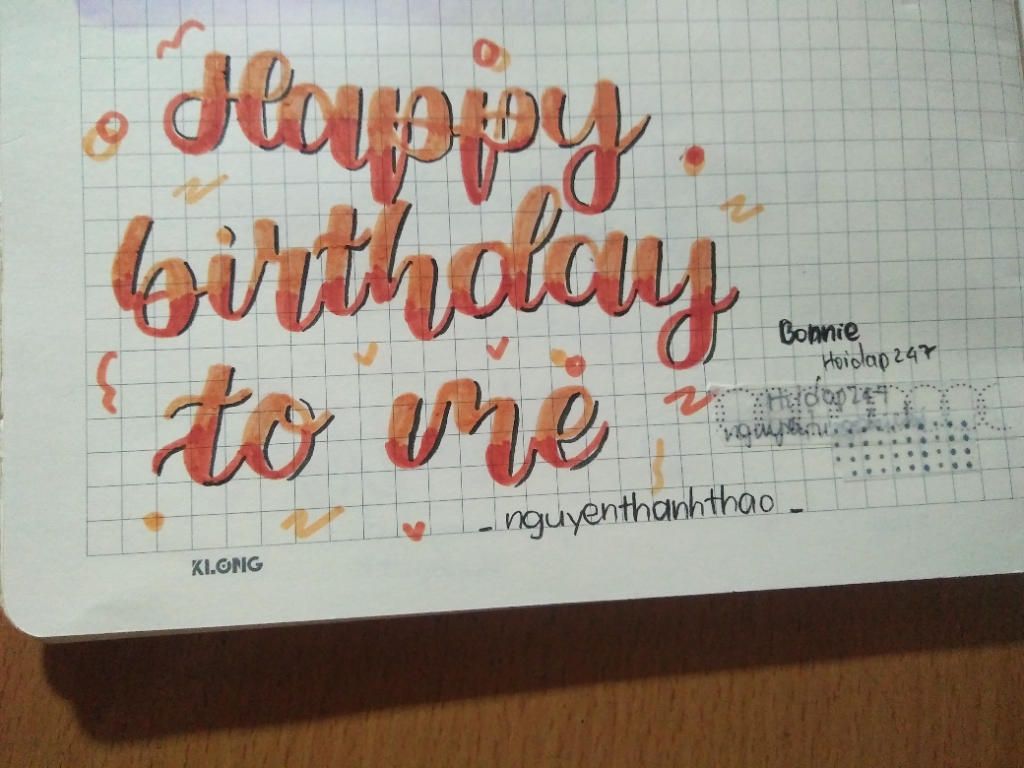 Happy
birthday
to me
Bonnie
Hoidap247
Hoidap247
- nguyenthanhthao -
KLONG